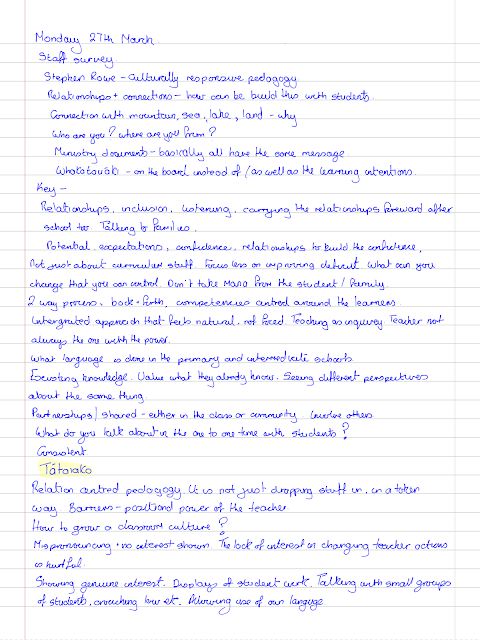 Monday 27th March
Staff survey
Stephen Rowe - Culturally responsive pedagogy
Relationships + connections - how can be build this with students.
Connection with mountain, sea, lake, land - why
Who are you? where are you from?
Ministry documents - basically all have the same message
Whakatauāki - on the board instead of / as well as the learning intentions.
Key -
Relationships, inclusion, listening, carrying the relationships forward after
school too Talking to families.
Potential, expectations, confidence, relationships to build the confidence,
Not just about curricular stuff. Focus less on improving deficit. What can you
change that you can control. Don't take Mana from the student / family.
2 way process, back + forth, competencies centred around the learners
Intergrated approach that feels natural. not forced Teaching as inquirey. Teacher not
always the one with the power.
What language is done in the primary and intermediate schools
Existing knowledge. Value what they already know. Seeing different perspectives
about the same thing.
Partnerships / shared - either in the class or community. Involve others
What do you talk about in the one to one time with students?
Consistent.
Tātaiako
Relation centred pedagogy. It is not just dropping stuff in, in a token
way. Barriers - positional power of the teacher
How to grow a classroom culture?
Mispronouncing + no interest shown. The lack of interest in changing teacher actions
is hurtful.
Showing genuine interest. Displays of student work. Talking with small groups
of students, crouching low etc. Allowing use of own language